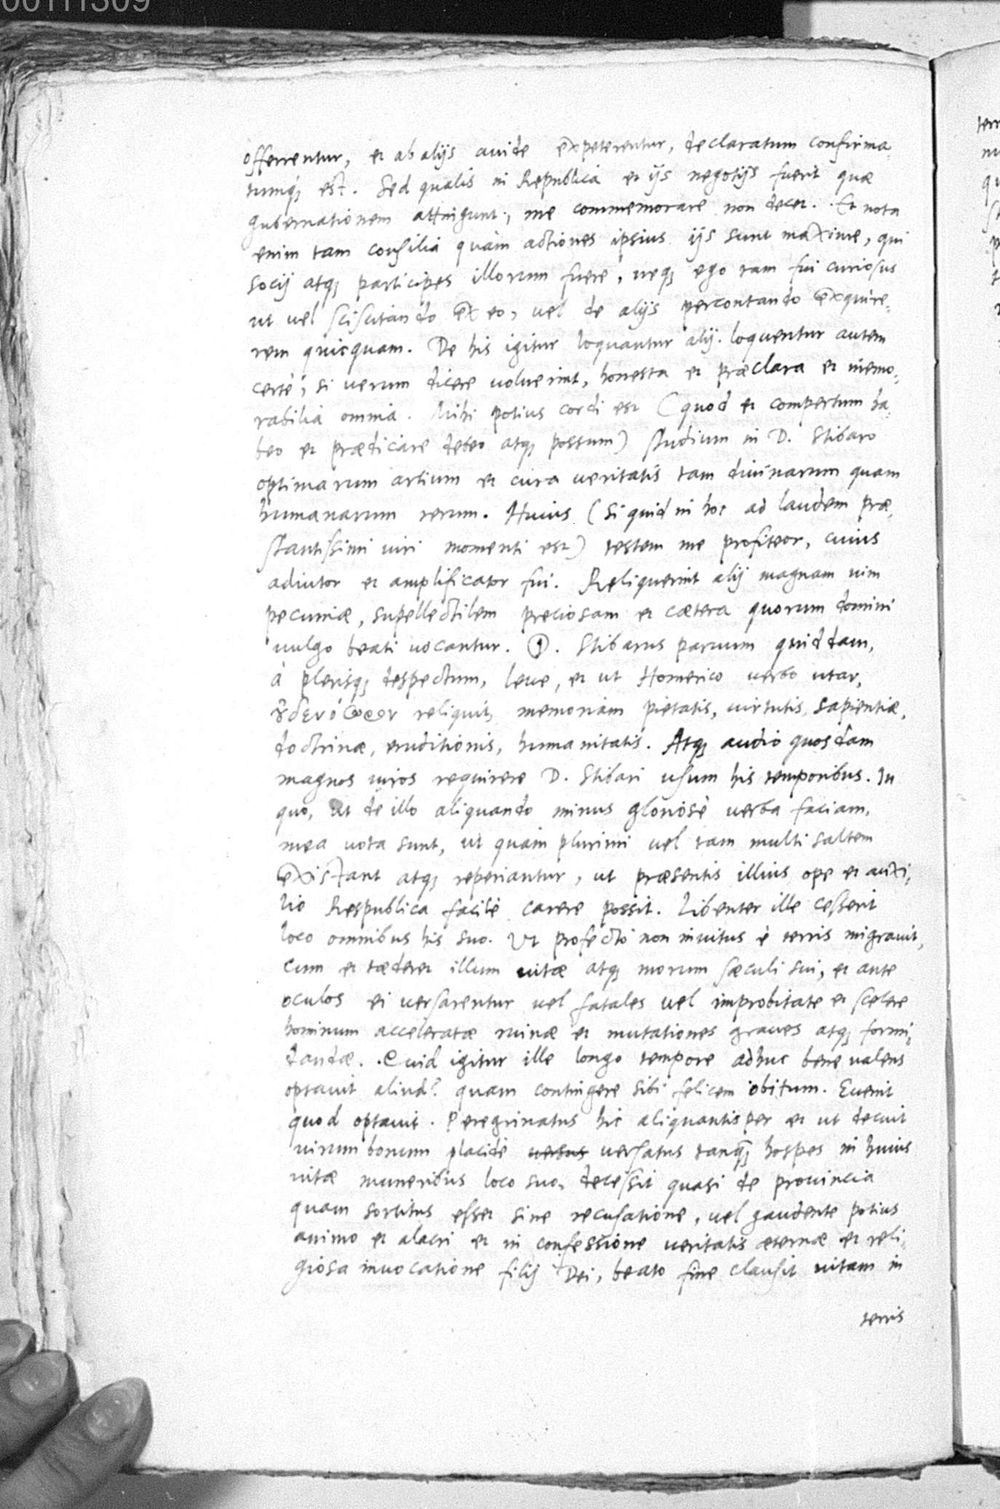 00111309
offerrentur, et ab alijs auide expeterentur, declaratum confirma,
tumq́ est. Sed qualis in Republica et ijs negotijs fuerit quæ
gubernationem attingunt, me commemorare non decet. Et nota
enim tam consilia quàm actiones ipsius ijs sunt maxime, qui
socij atq́ participes illorum fuere, neq́ ego tam fui curiosus
ut vel sciscitando ex eo, vel de alijs percontando exquire,
rem quicquam. De his igitur loquantur alij. loquentur autem
certè, si verum dicere voluerint, honesta et præclara et memo,
rabilia omnia. Mihi potius cordi est (quod et compertum ha,
beo et prædicare debeo atq́ possum) studium in D. Stibaro
optimarum artium et cura veritatis tam diuinarum quam
humanarum rerum. Huius (si quid in hoc ad laudem præ,
stantissimi viri momenti est) testem me profiteor, cuius
adiutor et amplificator fui. Reliquerint alij magnam uim
pecuniæ, supellectilem preciosam et cætera quorum domini
vulgo beati vocantur. D. Stibarus paruum quiddam,
à plerisq́ despectum, leue, et ut Homerico verbo utar,
οὐδενόσωρον reliquit, memoriam pietatis, virtutis, sapientiæ,
doctrinæ, eruditionis, humanitatis. Atq́ audio quosdam
magnos viros requirere D. Stibari usum his temporibus. In
quo, ut de illo aliquando minus gloriosè verba faciam,
mea vota sunt, ut quàm plurimi vel tam multi saltem
existant atq́ reperiantur, ut præsentis illius ope et auxi,
lio Respublica facilè carere possit. Libenter ille cesserit
loco omnibus his suo. Ut profectò non inuitus è terris migrauit,
Cum et tæderet illum vitæ atq́ morum sæculi sui, et ante
oculos ei versarentur vel fatales vel improbitate et scelere
hominum acceleratæ ruinæ et mutationes graues atq́ formi,
dandæ. Quid igitur ille longo tempore adhuc bene valens
optauit aliud? quam contingere sibi felicem obitum. Euenit
quod optauit. Peregrinatus hic aliquantisper et ut decuit
virum bonum placidè versatus tanq́ hospes in huius
vitæ muneribus loco suo, decessit quasi de prouincia
quam sortitus esset sine recusatione, vel gaudente potius
animo et alacri et in confessione veritatis æternæ et reli,
giosa inuocatione filij Dei, beato fine clausit vitam in
terris